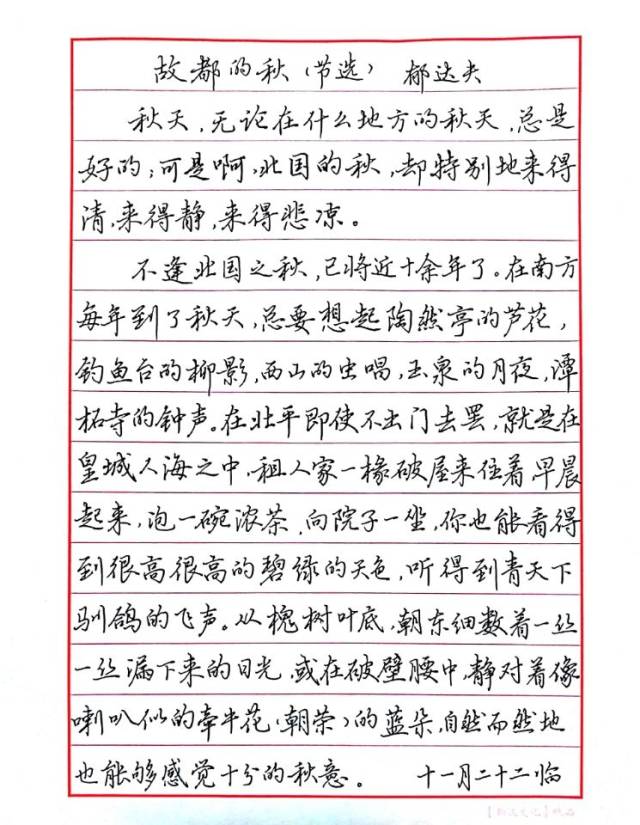 故都的秋（节选） 郁达夫
秋天，无论在什么地方的秋天，总是
好的；可是啊，北国的秋，却特别地来得
清，来得静，来得悲凉。
不逢北国之秋，已将近十余年了。在南方
每年到了秋天，总要想起陶然亭的芦花，
钓鱼台的柳影，西山的虫唱，玉泉的月夜，潭
柘寺的钟声。在北平即使不出门去罢，就是在
皇城人海之中，租人家一椽破屋来住着早晨
起来，泡一碗浓茶，向院子一坐，你也能看得
到很高很高的碧绿的天色，听得到青天下
驯鸽的飞声。从槐树叶底，朝东细数着一丝
一丝漏下来的日光，或在破壁腰中，静对着像
喇叭似的牵牛花（朝荣）的蓝朵，自然而然地
也能够感觉十分的秋意。 十一月二十二临